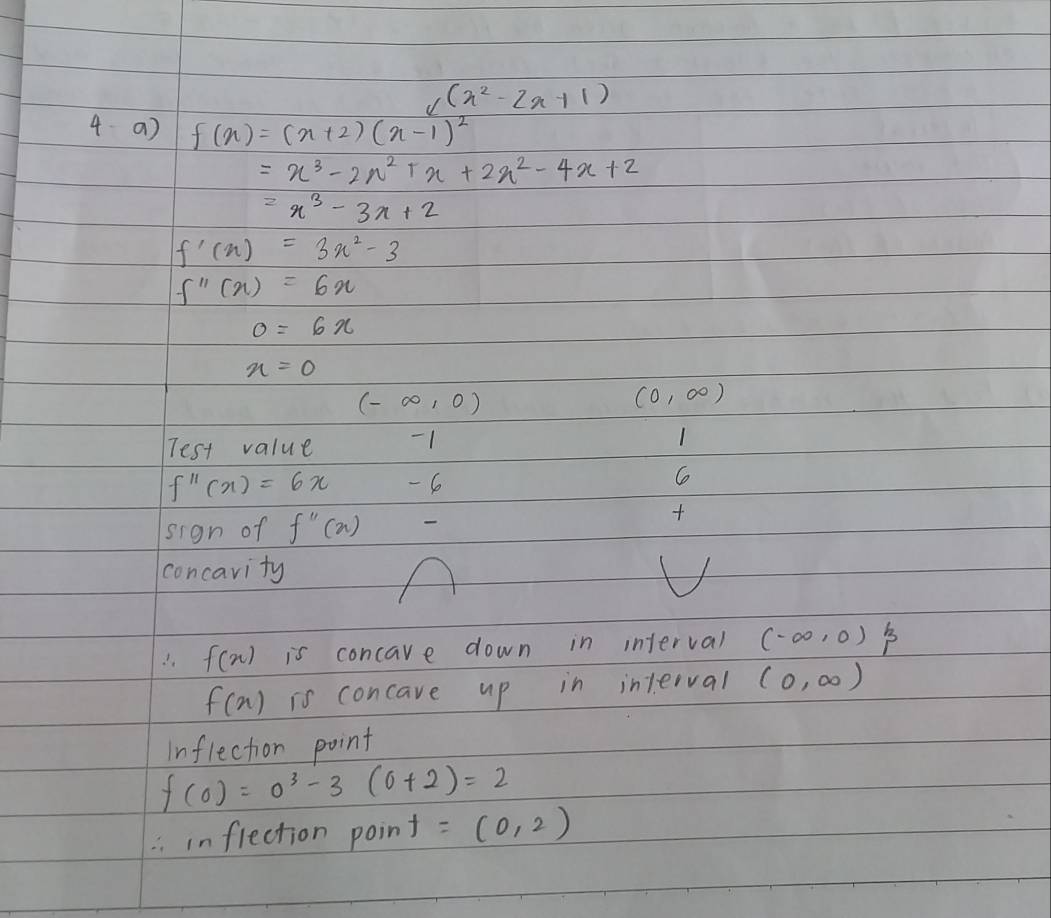 (x² - 2x + 1)
4. a) f(x) = (x+2)(x-1)²
= x³ - 2x² + x + 2x² - 4x + 2
= x³ - 3x + 2
f'(x) = 3x² - 3
f"(x) = 6x
0 = 6x
x = 0
(-∞, 0) (0, ∞)
Test value -1 1
f"(x) = 6x -6 6
sign of f"(x) - +
concavity
∴ f(x) is concave down in interval (-∞, 0) &
f(x) is concave up in interval (0, ∞)
Inflection point
f(0) = 0³ - 3 (0+2) = 2
∴ inflection point = (0, 2)